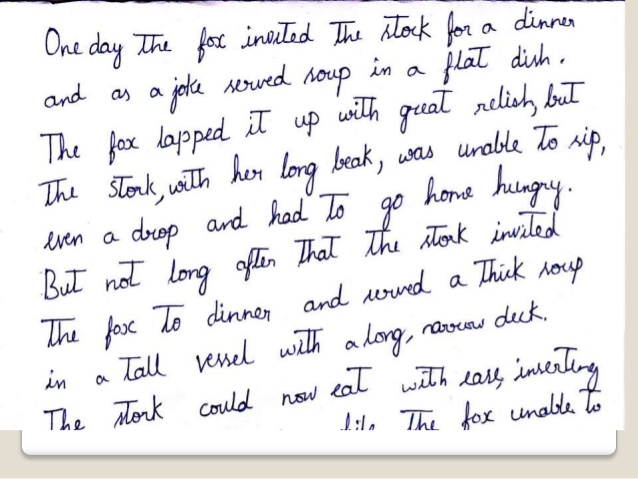 One day The fox invited The stock for a dinner
and as a joke served soup in a flat dish.
The fox lapped it up with great relish, but
The stork, with her long beak, was unable To sip,
even a drop and had To go home hungry.
But not long after That The stork invited
The fox To dinner and served a Thick soup
in a Tall vessel with a long, narrow deck.
The stork could now eat with ease, inserting
The fox unable To